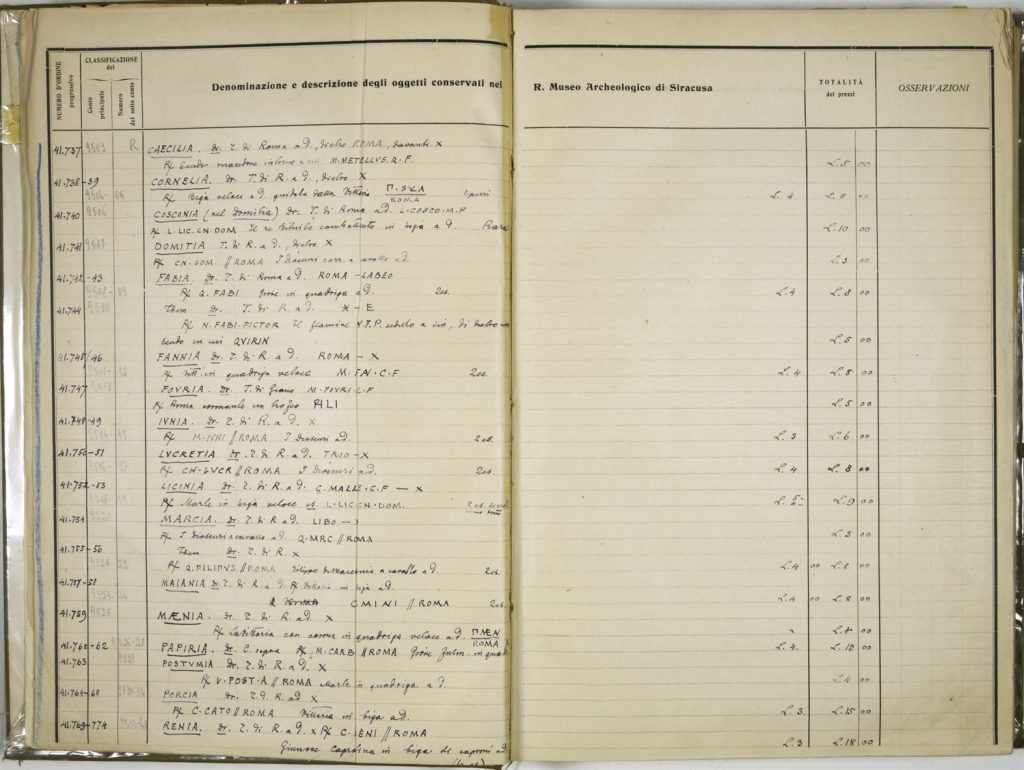 NUMERO D'ORDINE progressivo
CLASSIFICAZIONE del
Conto principale
Numero del sotto conto
Denominazione e descrizione degli oggetti conservati nel R. Museo Archeologico di Siracusa
TOTALITÀ dei prezzi
OSSERVAZIONI
41.737 9503 R CAECILIA. Dr. T. di Roma a d., dietro ROMA, davanti X
R/ Scudo macedone intorno a cui M·METELLVS·Q·F L. 5 00
41.738-39 CORNELIA. Dr. T. di R. a d., dietro X
R/ Biga veloce a d. guidata dalla Vittoria ROMA L. 4 L. 8 00
41.740 9506 COSCONIA (vel Domitia) Dr. T. di Roma a d. L·COSCO·M·F
R/ L·LIC·CN·DOM Il re Bituito combattente in biga a d. Rara L. 10 00
41.741 9507 DOMITIA T. di R. a d., dietro X
R/ CN·DOM // ROMA I Dioscuri a cavallo ad. L. 3 00
41.742-43 FABIA. Dr. T. di Roma a d. ROMA - LABEO
R/ Q. FABI in quadriga a d. 2 es. L. 4 L. 8 00
41.744 9510 Idem Dr. T. di R. a d. X - E
R/ N·FABI·PICTOR Il flamine seduto a sin., di dietro
scudo in cui QVIRIN L. 5 00
41.745/46 FANNIA Dr. T. di R. a d. ROMA - X
R/ Vitt. in quadriga veloce M·FAN·C·F 2 es. L. 4 L. 8 00
41.747 FOVRIA. Dr. T. di Giano M·FOVRI·L·F
R/ Roma coronante un trofeo PHILI L. 5 00
41.748-49 IVNIA. Dr. T. di R. a d. X
R/ M·IVNI // ROMA I Dioscuri ad. 2 es. L. 3 L. 6 00
41.750-51 LVCRETIA Dr. T. di R. a d. TRIO - X
R/ CN·LVCR // ROMA I Dioscuri ad. 2 es. L. 4 L. 8 00
41.752-53 LICINIA Dr. T. di R. a d. C·MALLE·C·F - X
R/ Marte in biga veloce L·LIC·CN·DOM. 2 es. L. 5 L. 9 00
41.754 MARCIA. Dr. T. di R. a d. LIBO - X
R/ I Dioscuri a cavallo a d. Q·MRC // ROMA L. 5 00
41.755-56 Idem Dr. T. di R. X
R/ Q·PILIPVS // ROMA Filippo di Macedonia a cavallo a d. 2 es. L. 4 00 L. 8 00
41.757-58 MAIANIA Dr. T. di R. a d. R/ Vittoria in biga ad.
C MINI // ROMA 2 es. L. 4 00 L. 8 00
41.759 9525 MÆNIA. Dr. T. di R. a d. X
R/ La Vittoria con corona in quadriga veloce ad. P·MÆN ROMA L. 4 00
41.760-62 PAPIRIA. Dr. C. sopra R/ M·CARB // ROMA Giove fulm. in quad L. 4. L. 12 00
41.763 POSTVMIA Dr. T. di R. a d. X
R/ V·POST·A // ROMA Marte in quadriga a d. L. 4 00
41.764-68 PORCIA Dr. T. d. R. ad X
R/ C·CATO // ROMA Vittoria in biga ad. L. 3. L. 15 00
41.769-774 RENIA. Dr. T. di R. a d. X R/ C·RENI // ROMA
Giunone Caprotina in biga di caproni ad L. 3 L. 18 00